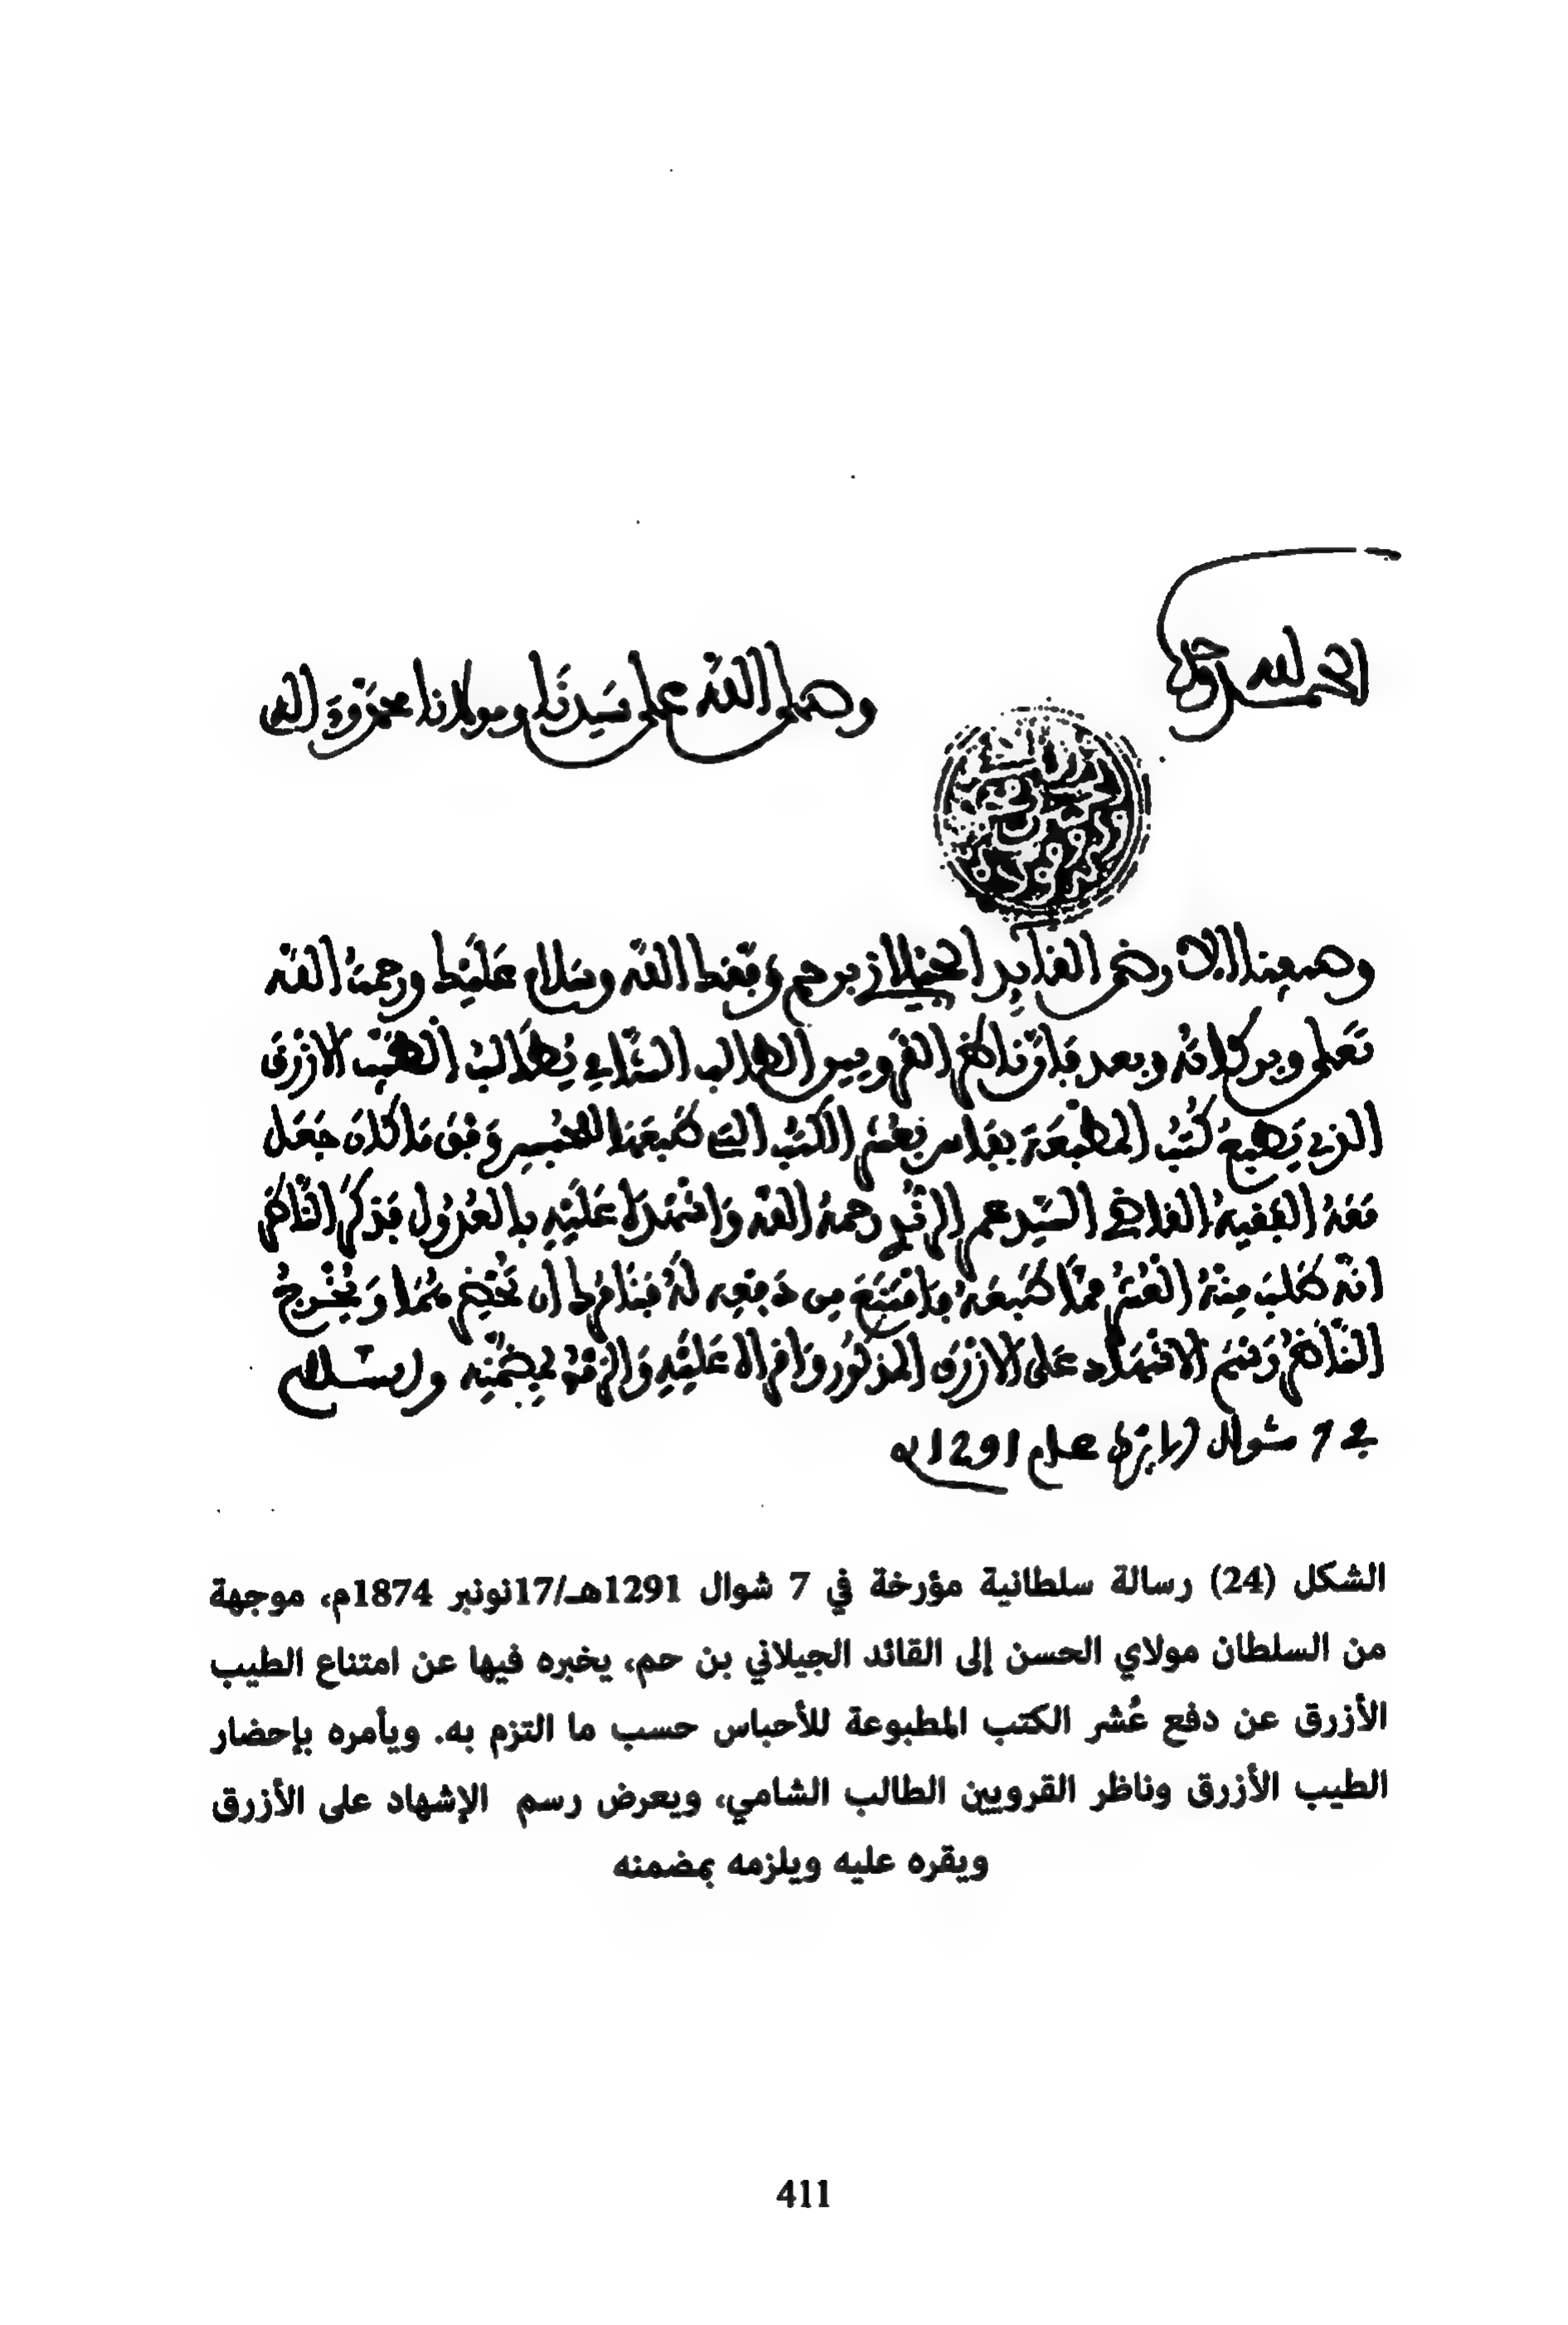 الحمد لله وحده
وصلى الله على سيدنا ومولانا محمد وءاله
وصيفنا الارضى القايد الجيلاني بن حم وفقك الله وسلام عليك ورحمة الله
تعلى وبركاته وبعد فإن ناظر القرويين الطالب الشامي يطالب الطيب الازرق
الذي يطبع كتب المطبعة بفاس بعشر الكتب التي طبعها للحبس وفق ما كان جعل
معه الفقيه القاضي السيد عمر الرندي رحمه الله واشهد به عليه بالعدول فذكر الناظر
انه طلب منه العشر مما طبعه فامتنع من دفعه له فنامرك ان تحضرهما ويخرج
الناظر رسم الاشهاد على الازرق المذكور واقراه عليه والزمه بمضمنه والسلام
في 7 شوال الابرك عام 1291
الشكل (24) رسالة سلطانية مؤرخة في 7 شوال 1291هـ/17نونبر 1874م، موجهة
من السلطان مولاي الحسن إلى القائد الجيلاني بن حم، يخبره فيها عن امتناع الطيب
الأزرق عن دفع عُشر الكتب المطبوعة للأحباس حسب ما التزم به. ويأمره بإحضار
الطيب الأزرق وناظر القرويين الطالب الشامي، ويعرض رسم الإشهاد على الأزرق
ويقره عليه ويلزمه بمضمنه
411